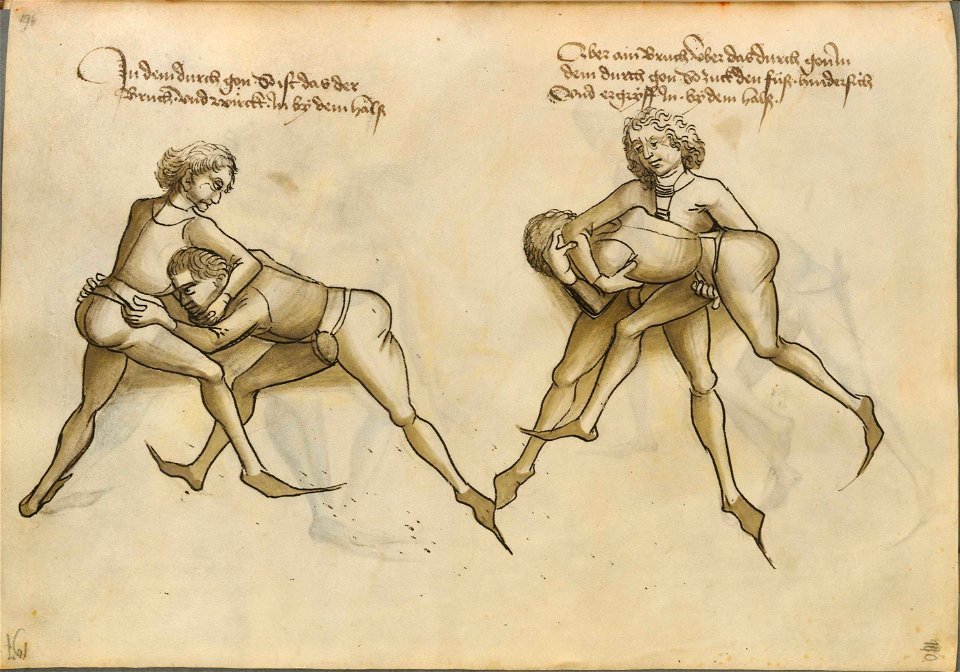 In dem durch gon So ist das der
Bruch. und zwirckt In by dem hals
Aber ain Bruch uber das durch gon In
dem durch gon So zuck den fus. hindersich
Und ergryff In. by dem hals.